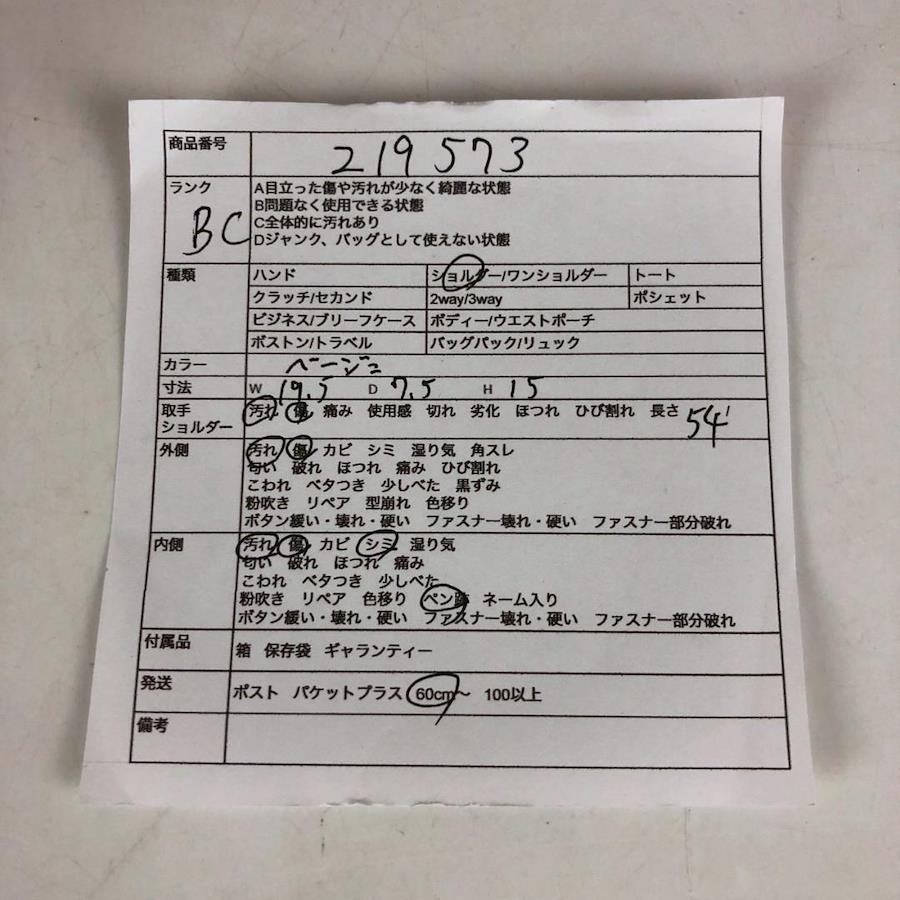 商品番号 219573
ランク BC
A目立った傷や汚れが少なく綺麗な状態
B問題なく使用できる状態
C全体的に汚れあり
Dジャンク、バッグとして使えない状態
種類 ハンド ショルダー/ワンショルダー トート
クラッチ/セカンド 2way/3way ポシェット
ビジネス/ブリーフケース ボディー/ウエストポーチ
ボストン/トラベル バッグパック/リュック
カラー ベージュ
寸法 W 19.5 D 7.5 H 15
取手 汚れ 傷 痛み 使用感 切れ 劣化 ほつれ ひび割れ 長さ 54
ショルダー
外側 汚れ 傷 カビ シミ 湿り気 角スレ
匂い 破れ ほつれ 痛み ひび割れ
こわれ ベタつき 少しべた 黒ずみ
粉吹き リペア 型崩れ 色移り
ボタン緩い・壊れ・硬い ファスナー壊れ・硬い ファスナー部分破れ
内側 汚れ 傷 カビ シミ 湿り気
匂い 破れ ほつれ 痛み
こわれ ベタつき 少しべた
粉吹き リペア 色移り ペン跡 ネーム入り
ボタン緩い・壊れ・硬い ファスナー壊れ・硬い ファスナー部分破れ
付属品 箱 保存袋 ギャランティー
発送 ポスト パケットプラス 60cm〜 100以上
備考